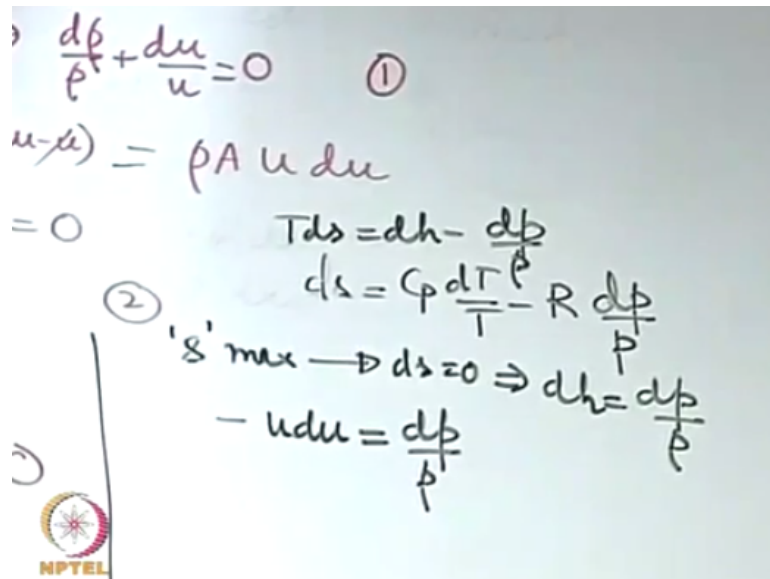 dρ/ρ + du/u = 0 ①
u-u) = ρA u du
= 0
Tds = dh - dp/ρ
②
ds = Cp dT/T - R dp/p
's' max → ds=0 ⇒ dh = dp/ρ
- udu = dp/ρ
NPTEL